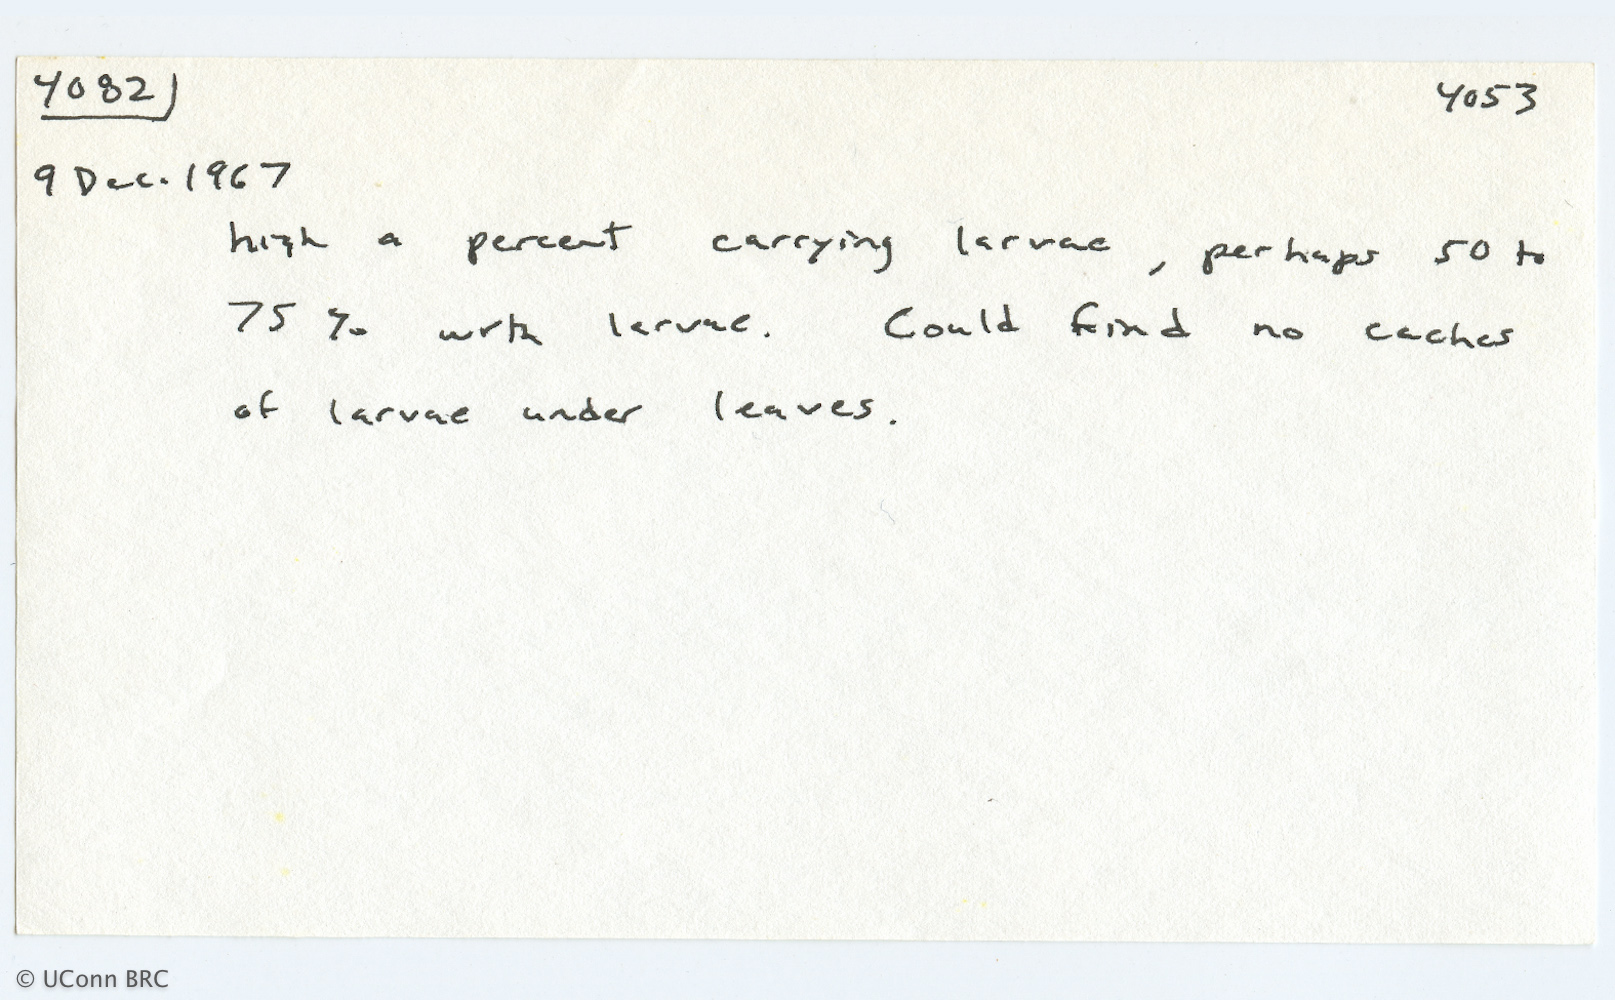 4082
4053
9 Dec. 1967
high a percent carrying larvae, perhaps 50 to
75 % with larvae. Could find no caches
of larvae under leaves.
© UConn BRC